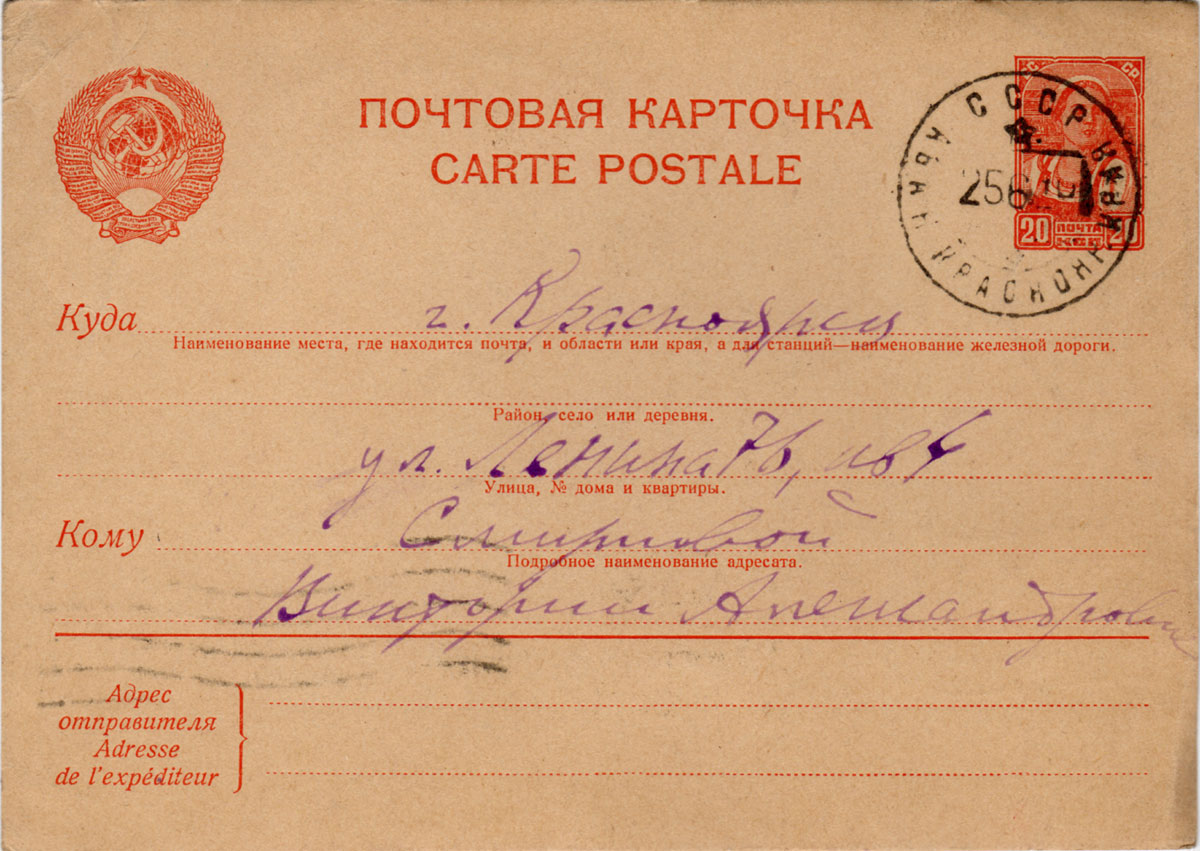 ПОЧТОВАЯ КАРТОЧКА
CARTE POSTALE
СССР
256
20 ПОЧТА 20
Куда г. Красноярск
Наименование места, где находится почта, и области или края, а для станций—наименование железной дороги.
Район, село или деревня.
ул. Ленина 76, кв 4
Улица, № дома и квартиры.
Кому Смирновой
Подробное наименование адресата.
Виктории Александровне
Адрес
отправителя
Adresse
de l'expéditeur